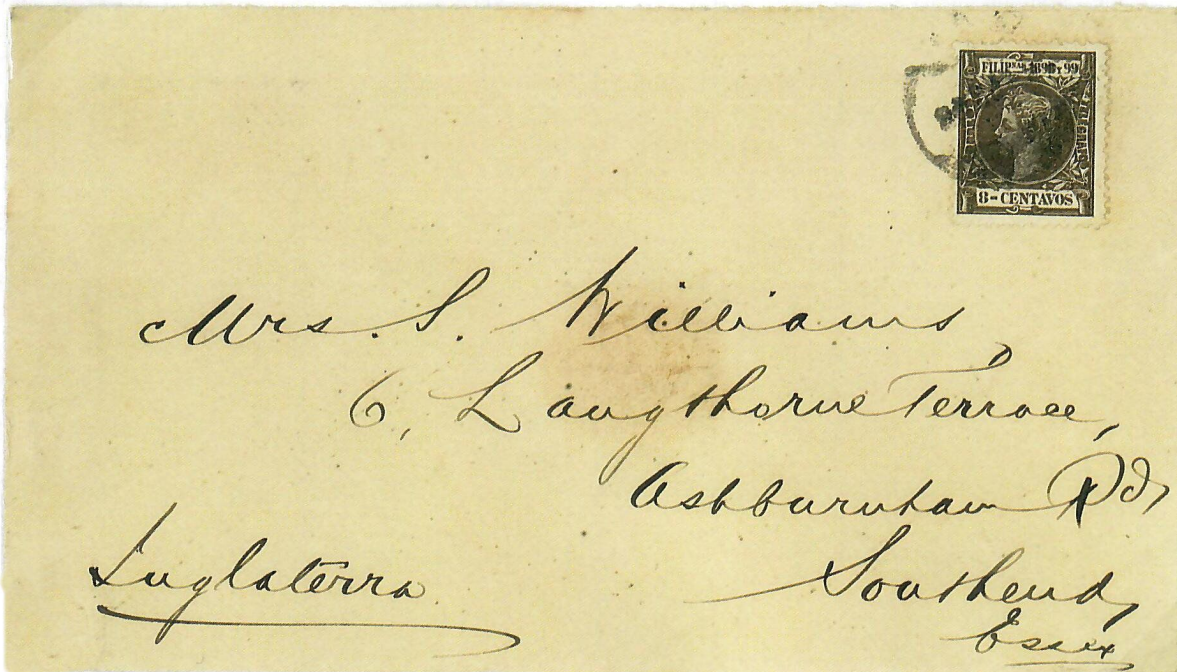 FILIPNAS 1898 Y 99
8-CENTAVOS
Mrs. S. Williams,
6, Langthorne Terrace,
Ashburnham Rd,
Southend,
Essex
Inglaterra